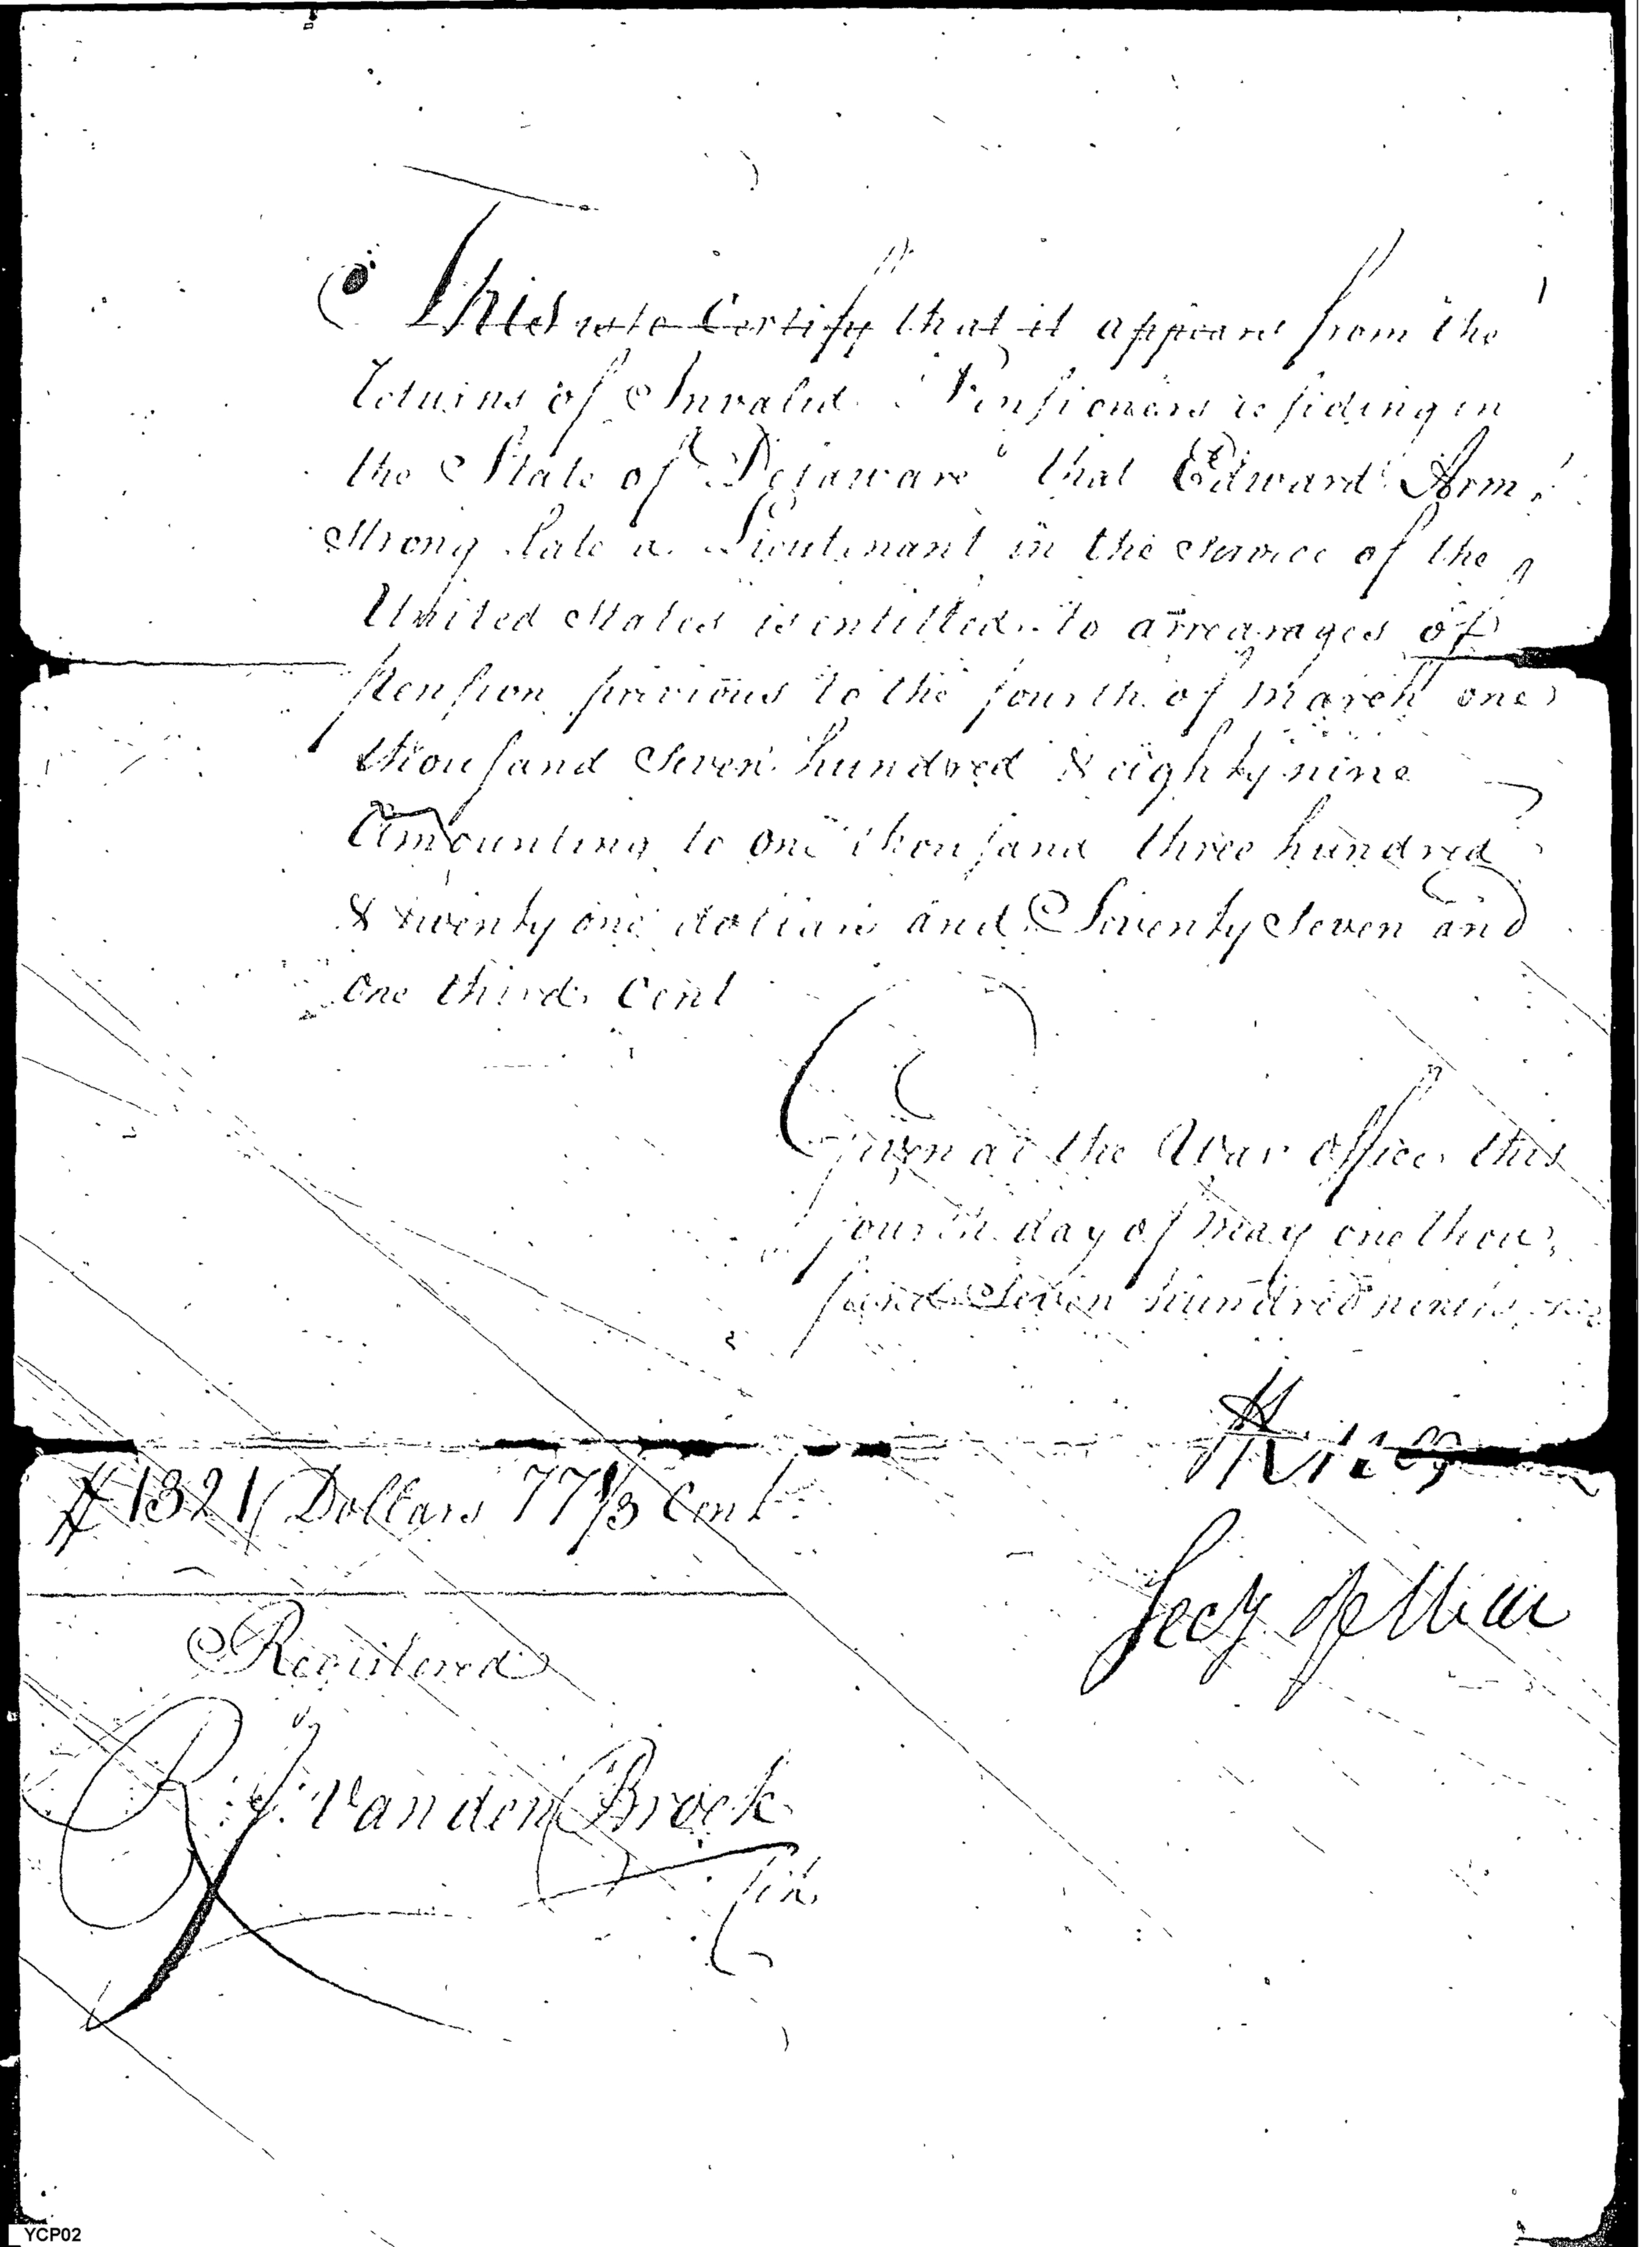 This is to Certify that it appears from the
returns of Invalid Pensioners residing in
the State of Delaware that Edward Arm
strong late a Lieutenant in the Service of the
United States is entitled to arrearages of
Pension previous to the fourth of march one
thousand Seven hundred & eighty nine
Amounting to one thousand three hundred
& twenty one dollars and Seventy Seven and
one third Cent
Given at the War office this
fourth day of may one thou
sand Seven hundred ninety
HKnox
# 1321 Dollars 77 1/3 Cent
Secy of War
Registered
R J: Vanden Brock
YCP02